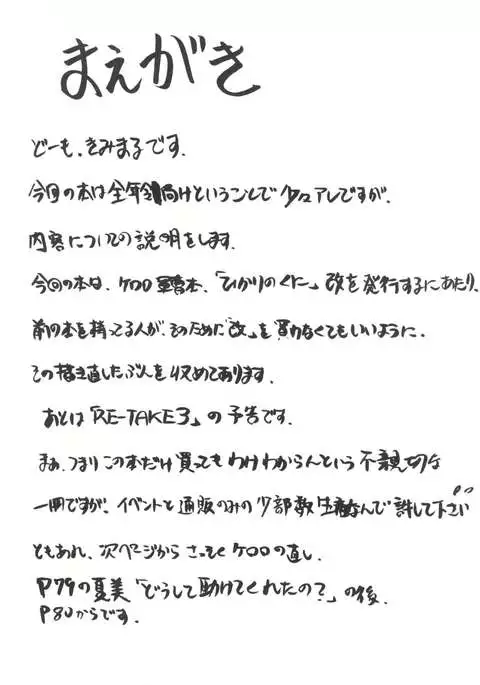 まえがき
どーも、きみまるです。
今回の本は全年令向けということで少々アレですが、
内容についての説明をします。
今回の本は、ケロロ総集本、「ひかりのくに」改を発行するにあたり、
前の本を持ってる人が、そのために「改」を買わなくてもいいように、
その描き直したぶんを収めてあります。
あとは「RE-TAKE3」の予告です。
まぁ、つまりこの本だけ買ってもわけわからんという不親切な
一冊ですが、イベントと通販のみの少部数生産なんで許して下さい
ともあれ、次ページからさっそくケロロの直し。
P79の夏美「どうして助けてくれたの?」の後、
P80からです。